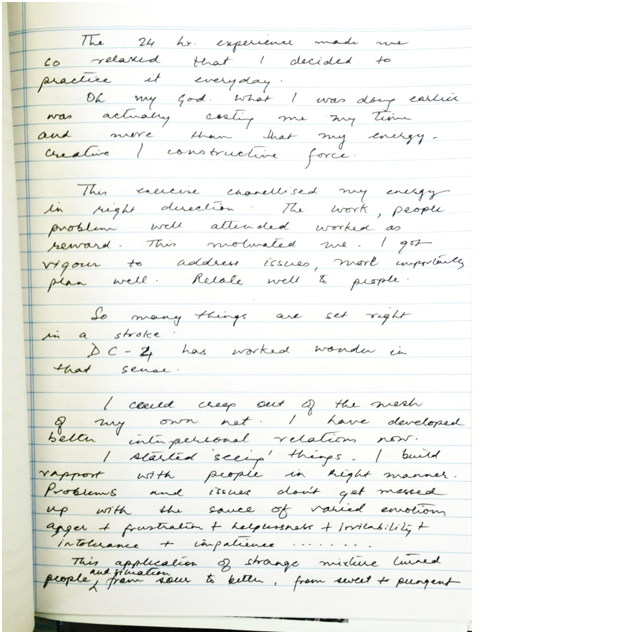 The 24 hr. experience made me
so relaxed that I decided to
practice it everyday.
Oh my God. What I was doing earlier
was actually costing me my time
and more than that my energy -
creative / constructive force.
This exercise chanellised my energy
in right direction. The work, people
problem well attended worked as
reward. This motivated me. I got
vigour to address issues, most importantly
plan well. Relate well to people.
So many things are set right
in a stroke.
DC-4 has worked wonder in
that sense.
I could creep out of the mesh
of my own net. I have developed
better interpersonal relations now.
I started 'seeing' things. I build
rapport with people in right manner.
Problems and issues don't get messed
up with the sauce of varied emotions
anger + frustration + helplessness + irritability +
intolerance + impatience ........
This application of strange mixture turned
people and situation from sour to bitter, from sweet + pungent